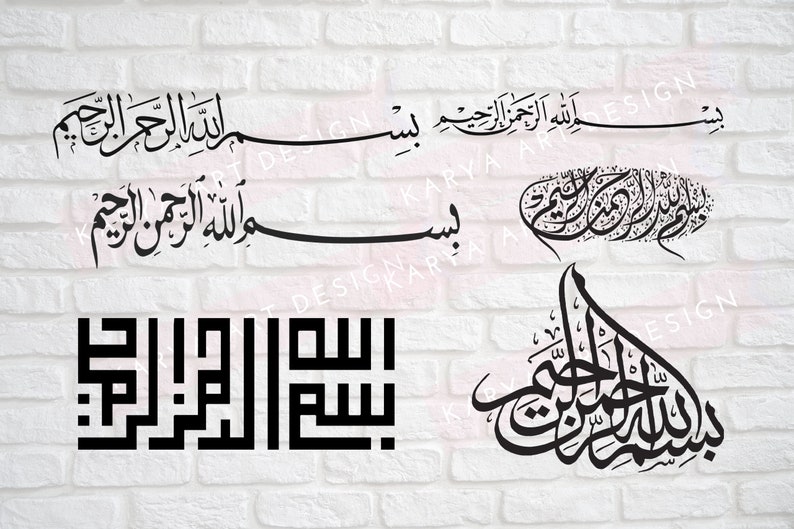 بسم الله الرحمن الرحيم
بسم الله الرحمن الرحيم
بسم الله الرحمن الرحيم
بسم الله الرحمن الرحيم
بسم الله الرحمن الرحيم
بسم الله الرحمن الرحيم
KARYA ART DESIGN
KARYA ART DESIGN
KARYA ART DESIGN
KARYA ART DESIGN